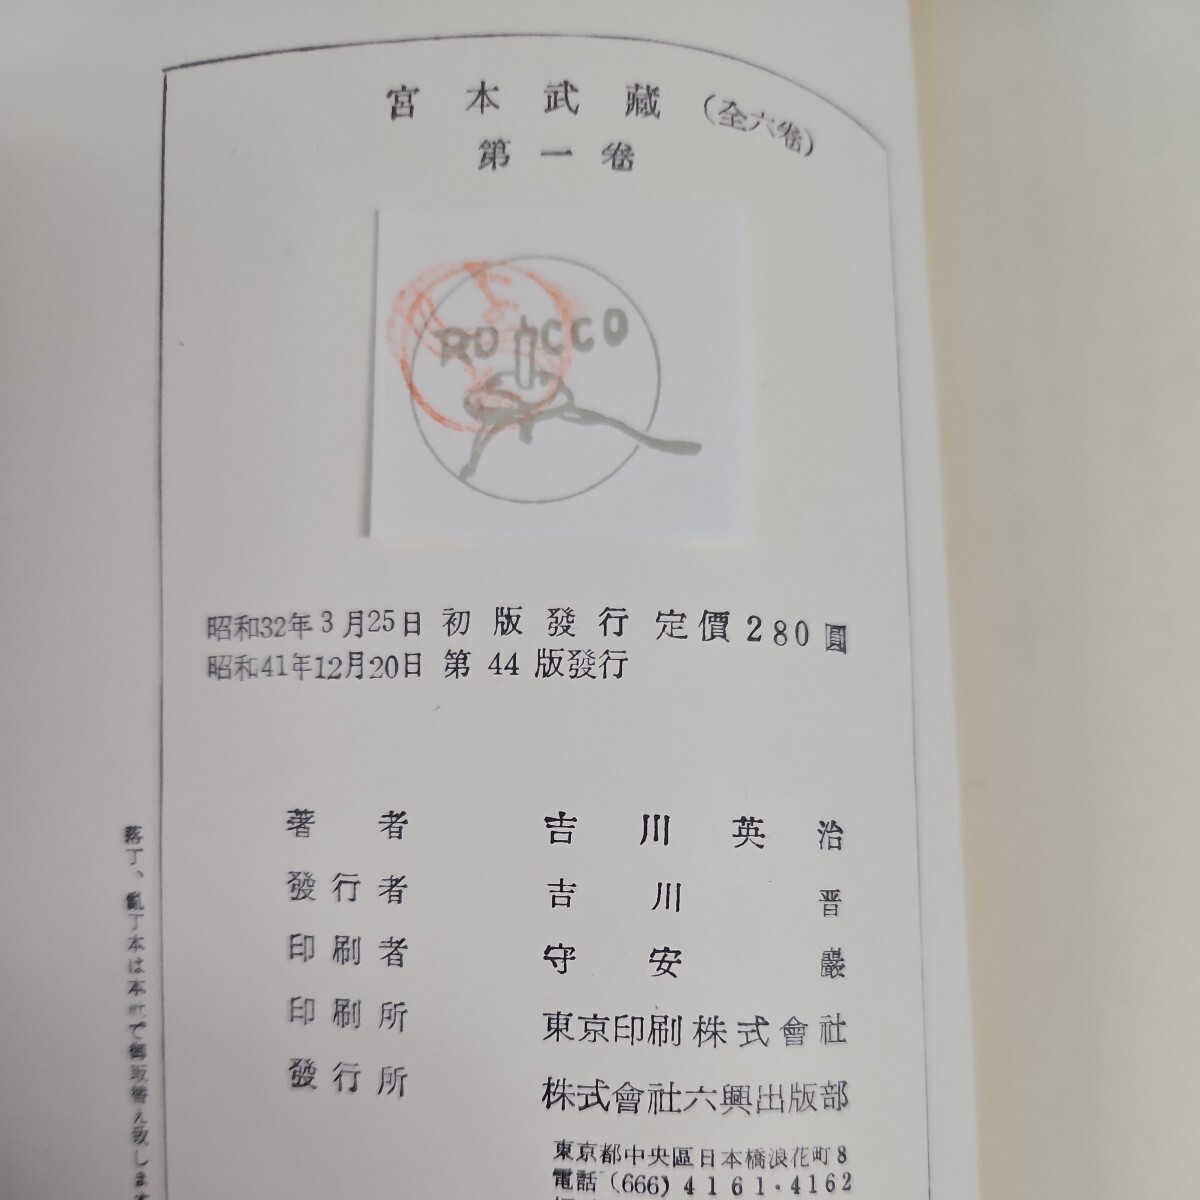 宮本武藏（全六卷）
第一卷
ROCCO
昭和32年3月25日 初版發行 定價280圓
昭和41年12月20日 第44版發行
著者 吉川英治
發行者 吉川晋
印刷者 守安巖
印刷所 東京印刷株式會社
發行所 株式會社六興出版部
東京都中央區日本橋浪花町8
電話（666）4161・4162
落丁、亂丁本は本町で御取替え致しま